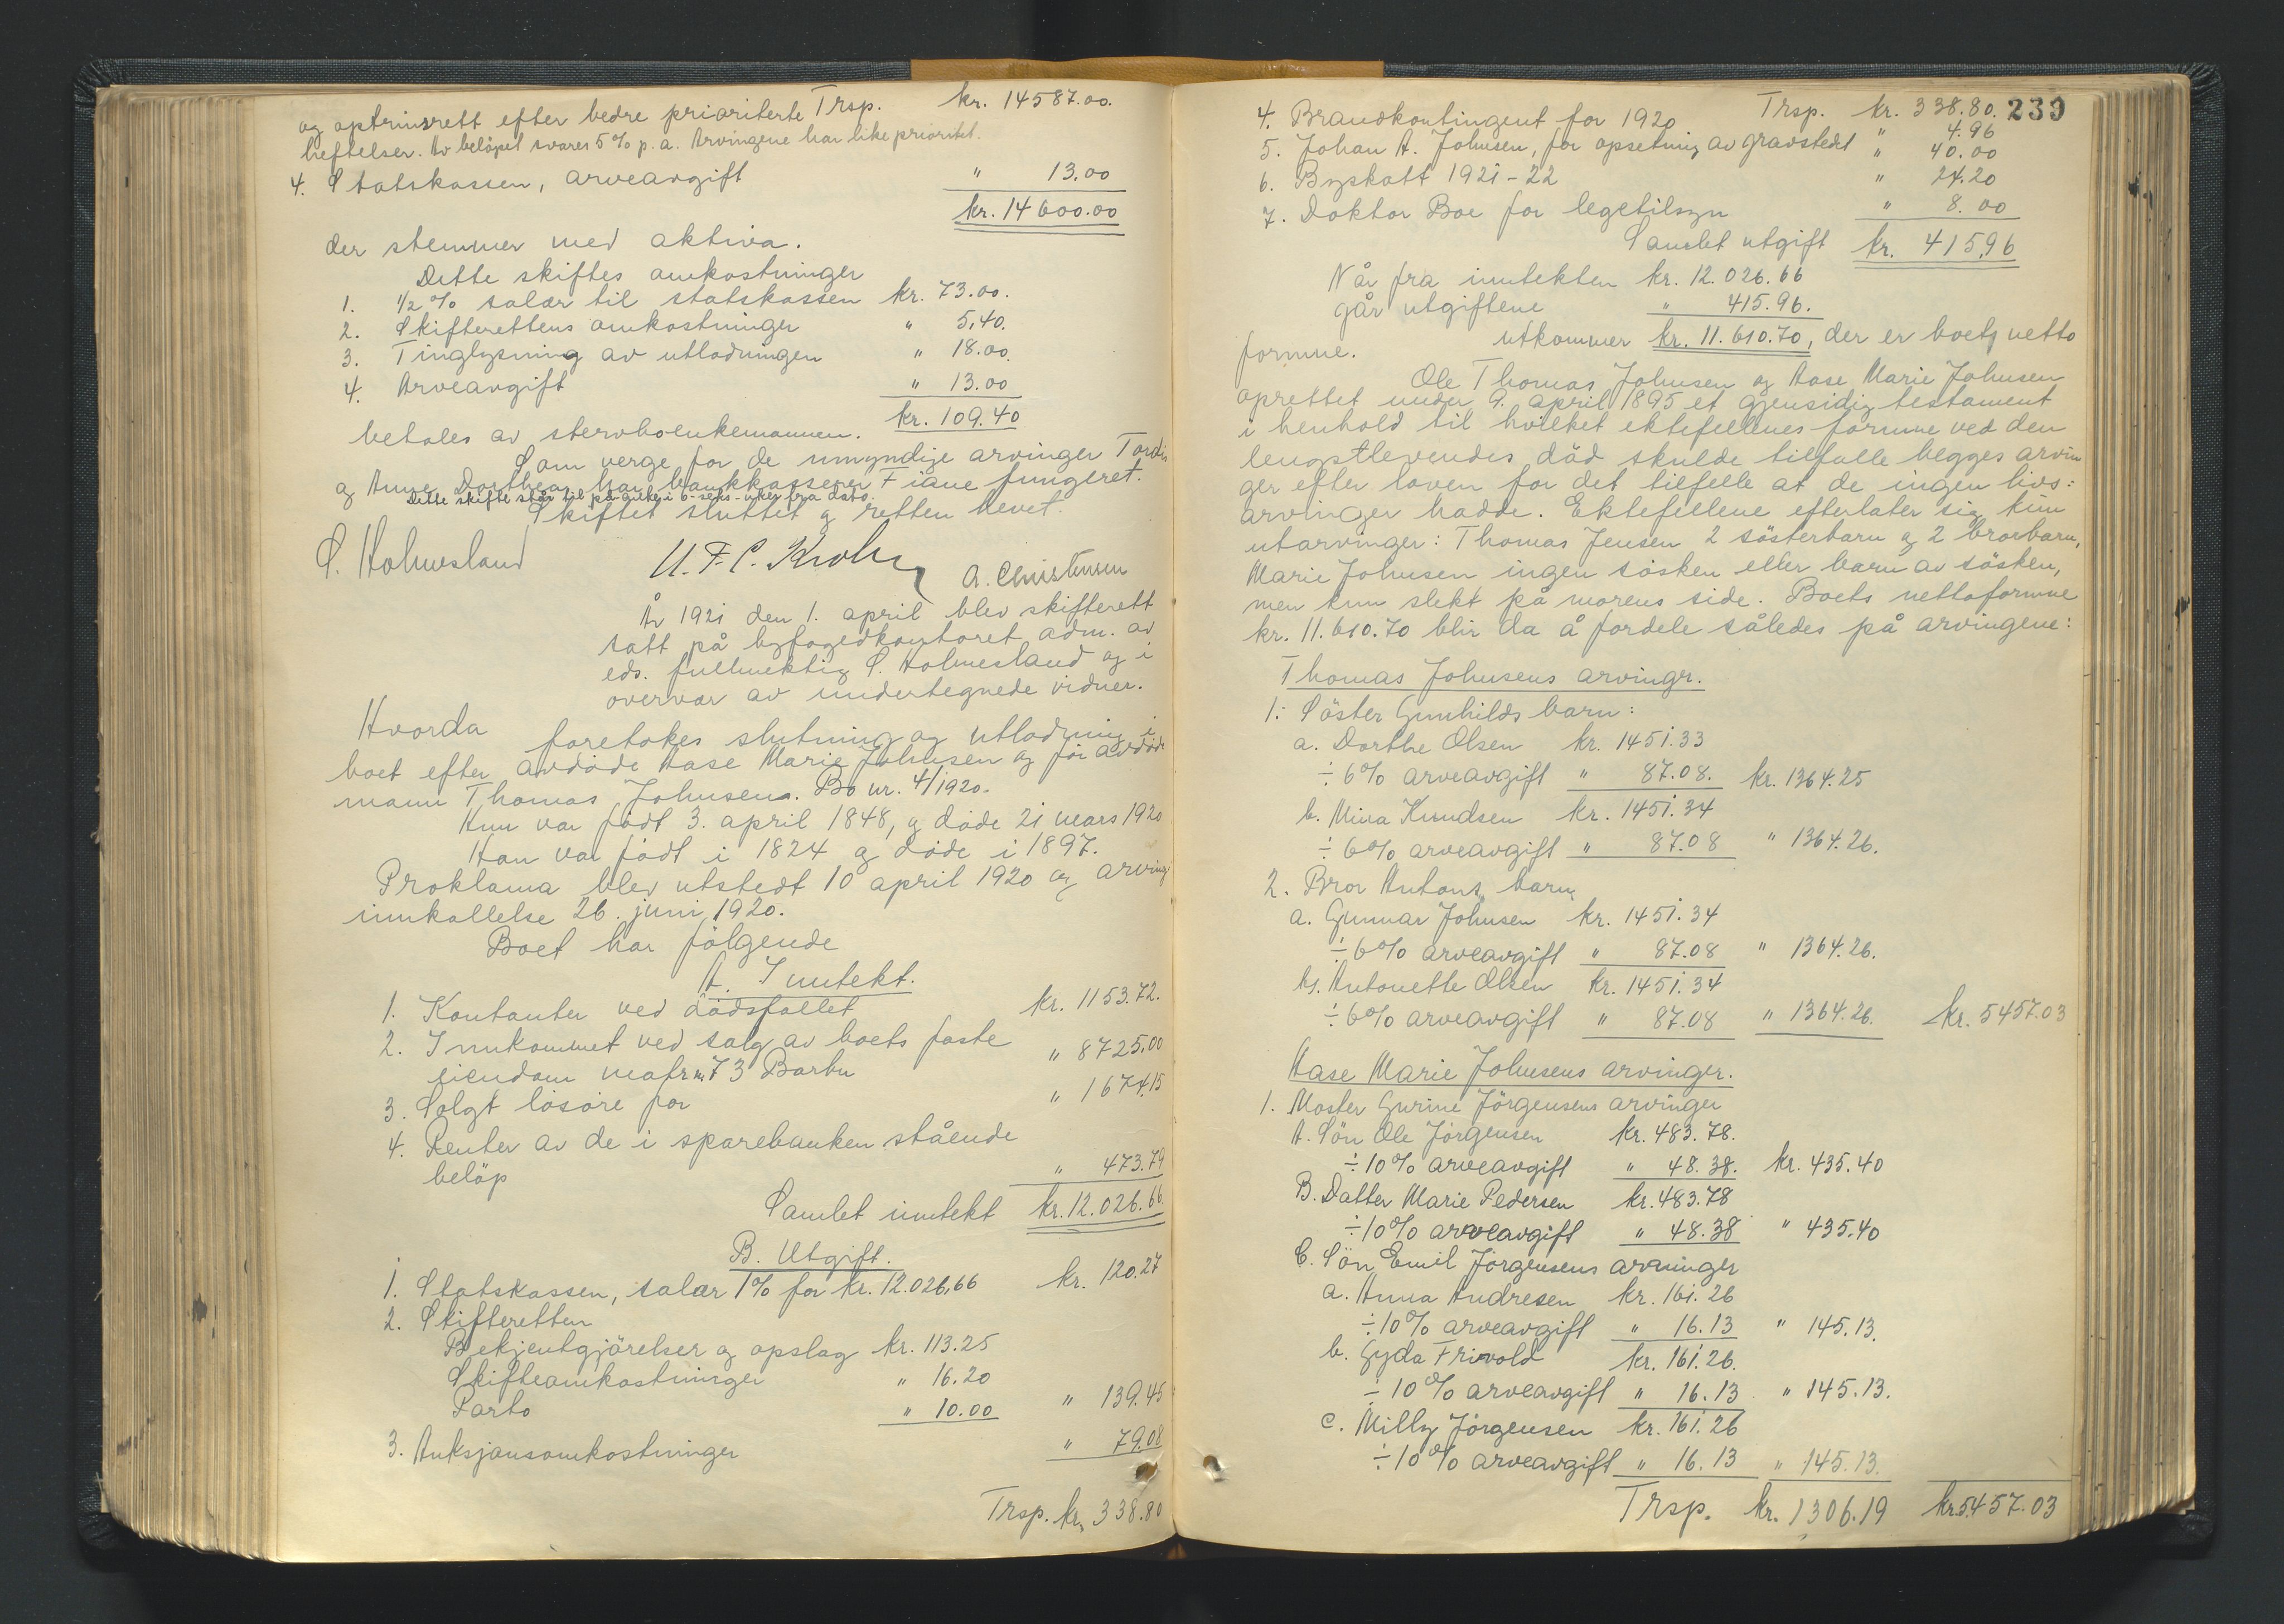 og optrinsrett efter bedre prioriterte Trsp. kr. 14587.00.
heftelser. Av beløpet svares 5% p. a. Arvingene har like prioritet.
4. Statskassen, arveavgift " 13.00
kr. 14600.00
der stemmer med aktiva.
Dette skiftes omkostninger
1. 1/2 % salær til statskassen kr. 73.00.
2. Skifterettens omkostninger " 5,40.
3. Tinglysning av utlodningen " 18.00.
4. Arveavgift " 13.00
kr. 109.40
betales av stervboenkemannen.
Som verge for de umyndige arvinger
og Anne Dorthea har bankkasserer Fiane fungeret.
Dette skifte står til påanke i 6-seks-uker fra dato.
Skiftet sluttet og retten hevet.
S. Holmesland U. F. C. Krohn A. Christensen
År 1921 den 1. april blev skifterett
satt på byfogedkontoret adm. av
eds. fullmektig S. Holmesland og i
overvær av undertegnede vidner.
Hvorda foretokes slutning og utlodning i
boet efter avdøde Aase Marie Johnsen og før avdøde
mann Thomas Johnsen. Bo nr. 4/1920.
Hun var født 3. april 1848, og døde 21 mars 1920
Han var født i 1824 og døde i 1897.
Proklama blev utstedt 10 april 1920 og arving
innkallelse 26. juni 1920.
Boet har følgende
A. Inntekt.
1. Kontanter ved dødsfallet kr. 1153.72.
2. Innkommet ved salg av boets faste
eiendom matr nr 73 Barbu " 8725,00
3. Solgt løsøre for " 1674,15
4. Renter av de i sparebanken stående
beløp " 473.79
Samlet inntekt kr. 12.026.66
B. Utgift.
1. Statskassen, salær 1% for kr. 12.026,66 kr. 120.27
2. Skifteretten
Bekjentgjørelser og opslag kr. 113.25
Skifteomkostninger " 16.20
Porto " 10.00 " 139.45
3. Auksjonsomkostninger " 79.08
Trsp. kr. 338.80
Trsp. kr. 338.80. 239
4. Brandkontingent for 1920 " 4.96
5. Johan A. Johnsen, for opsetning av gravstedet " 40.00
6. Byskatt 1921-22 " 24.20
7. Doktor Boe for legetilsyn " 8.00
Samlet utgift kr. 415,96
Når fra inntekten kr. 12.026.66
går utgiftene " 415.96.
utkommer kr. 11.610.70, der er boets netto
formue.
Ole Thomas Johnsen og Aase Marie Johnsen
oprettet under 9. april 1895 et gjensidig testament
i henhold til hvilket ektefellenes formue ved den
lengstlevendes død skulde tilfalle begges arvin
ger efter loven for det tilfelle at de ingen livs:
arvinger hadde. Ektefellene efterlater sig kun
utarvinger: Thomas Jensen 2 søsterbarn og 2 brorbarn,
Marie Johnsen ingen søsken eller barn av søsken,
men kun slekt på morens side. Boets nettoformue
kr. 11.610.70 blir da å fordele således på arvingene:
Thomas Johnsens arvingr.
1. Søster Gunhilds barn:
a. Dorthe Olsen kr. 1451.33
÷ 6% arveavgift " 87.08. kr. 1364.25
b. Mina Knudsen kr. 1451.34
÷ 6% arveavgift " 87.08 " 1364.26.
2. Bror Antons barn
a. Gunnar Johnsen kr. 1451.34
÷ 6% arveavgift " 87.08 " 1364.26.
b. Antonette Olsen kr. 1451.34
÷ 6% arveavgift " 87.08 " 1364.26. kr. 5457.03
Aase Marie Johnsens arvinger.
1. Moster Gurine Jörgensens arvinger
A. Sön Ole Jörgensen kr. 483.78.
÷ 10% arveavgift " 48.38. kr. 435.40
B. Datter Marie Pedersen kr. 483.78
÷ 10% arveavgift " 48.38 " 435.40
C. Sön Emil Jörgensens arvinger
a. Anna Andresen kr. 161.26
÷ 10% arveavgift " 16.13 " 145.13.
b. Gyda Frivold kr. 161.26.
÷ 10% arveavgift " 16.13 " 145.13.
c. Milly Jörgensen kr. 161.26
÷ 10% arveavgift " 16.13 " 145.13.
Trsp. kr. 1306.19 kr. 5457.03